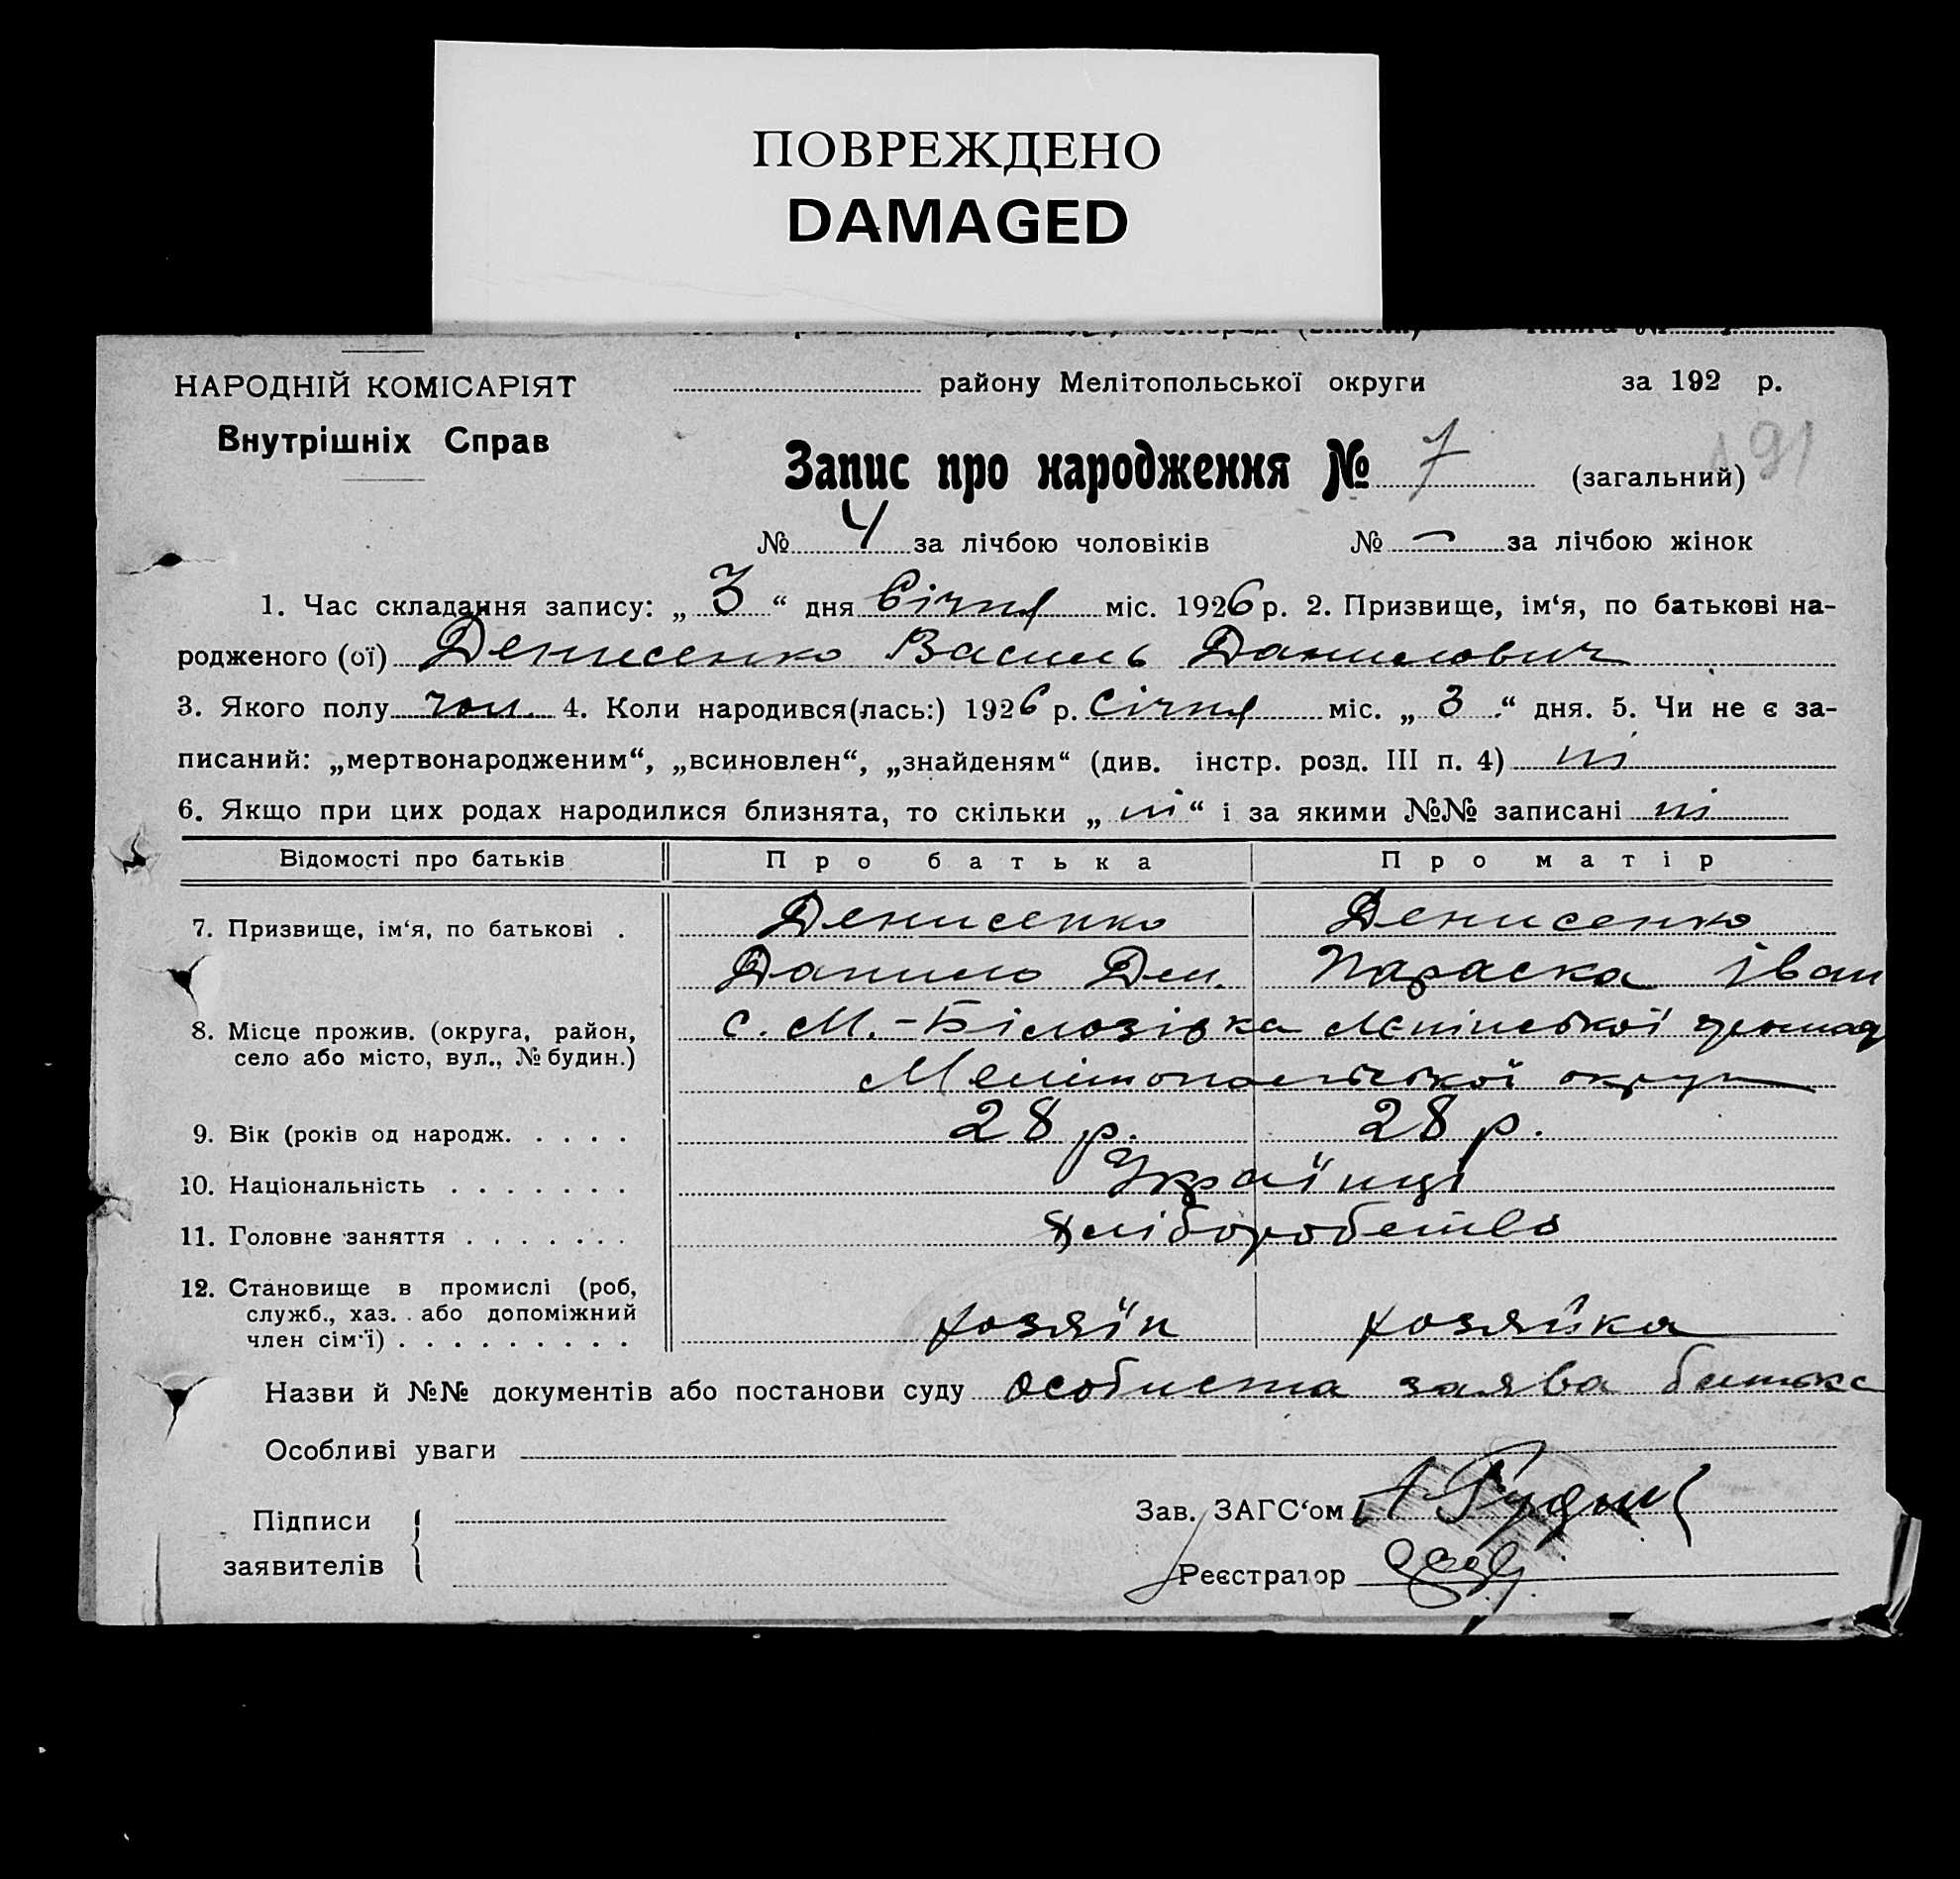 ПОВРЕЖДЕНО
DAMAGED
НАРОДНІЙ КОМІСАРІЯТ
Внутрішніх Справ
району Мелітопольської округи за 192 р.
191
Запис про народження № 7 (загальний)
№ 4 за лічбою чоловіків № — за лічбою жінок
1. Час складання запису: „ 3 “ дня Січня міс. 1926 р. 2. Призвище, ім‘я, по батькові на-
родженого (ої) Денисенко Василь Данилович
3. Якого полу чол. 4. Коли народився(лась:) 1926 р. Січня міс. „ 3 “ дня. 5. Чи не є за-
писаний: „мертвонародженим“, „всиновлен“, „знайденям“ (див. інстр. розд. III п. 4) ні
6. Якщо при цих родах народилися близнята, то скільки „ ні “ і за якими №№ записані ні
Відомості про батьків Про батька Про матір
7. Призвище, ім‘я, по батькові . Денисенко Денисенко
Данило Дем. Параска Іван
8. Місце прожив. (округа, район, с. М.-Білозірка
село або місто, вул., № будин.) Мелітопольської округи
9. Вік (років од народж. . . . . 28 р. 28 р.
10. Національність . . . . . . . Українці
11. Головне заняття . . . . . . . Хліборобство
12. Становище в промислі (роб,
служб., хаз. або допоміжний
член сім‘ї) . . . . . . . . . . хозяїн хозяйка
Назви й №№ документів або постанови суду особиста заява батька
Особливі уваги
Підписи
заявителів
Зав. ЗАГС‘ом
Реєстратор